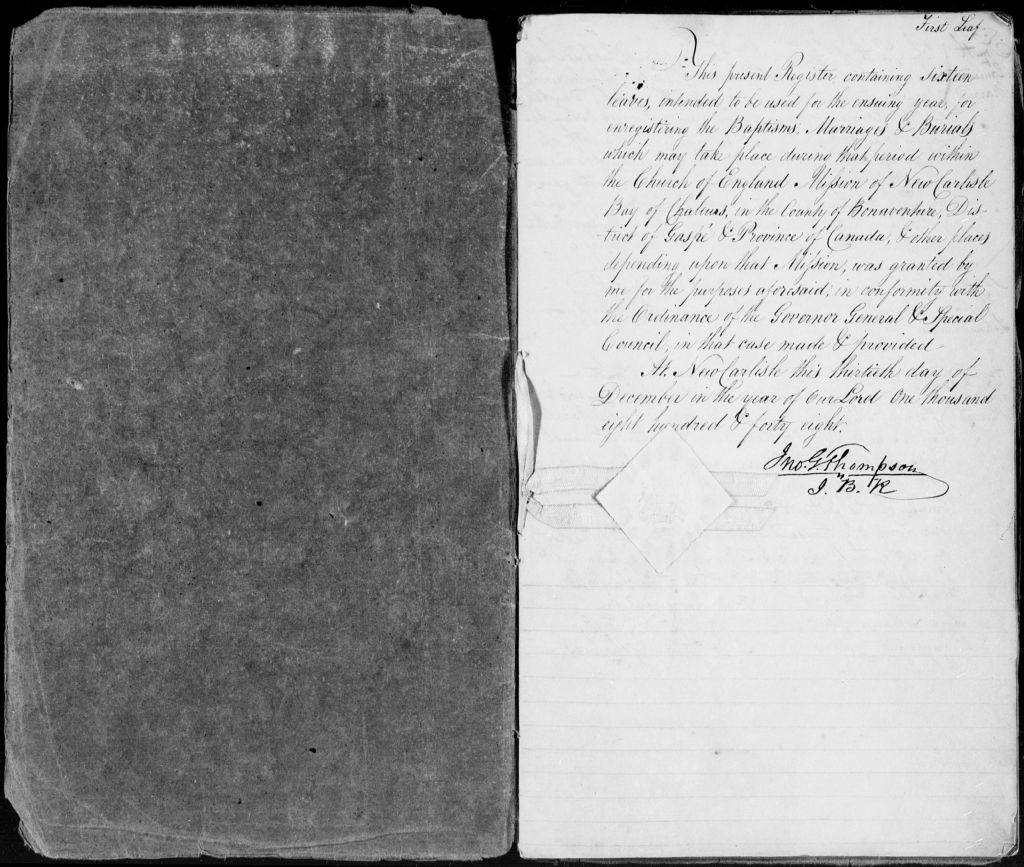 First Leaf
This present Register containing sixteen
leaves, intended to be used for the ensuing year, for
enregistering the Baptisms, Marriages & Burials
which may take place during that period within
the Church of England Mission of New Carlisle
Bay of Chaleurs, in the County of Bonaventure, Dis-
trict of Gaspé & Province of Canada, & other places
depending upon that Mission, was granted by
me for the purposes aforesaid, in conformity with
the Ordinance of the Governor General & Special
Council, in that case made & provided
At New Carlisle this thirtieth day of
December in the year of Our Lord One thousand
eight hundred & forty eight.
Jno. G. Thompson
J. B. R